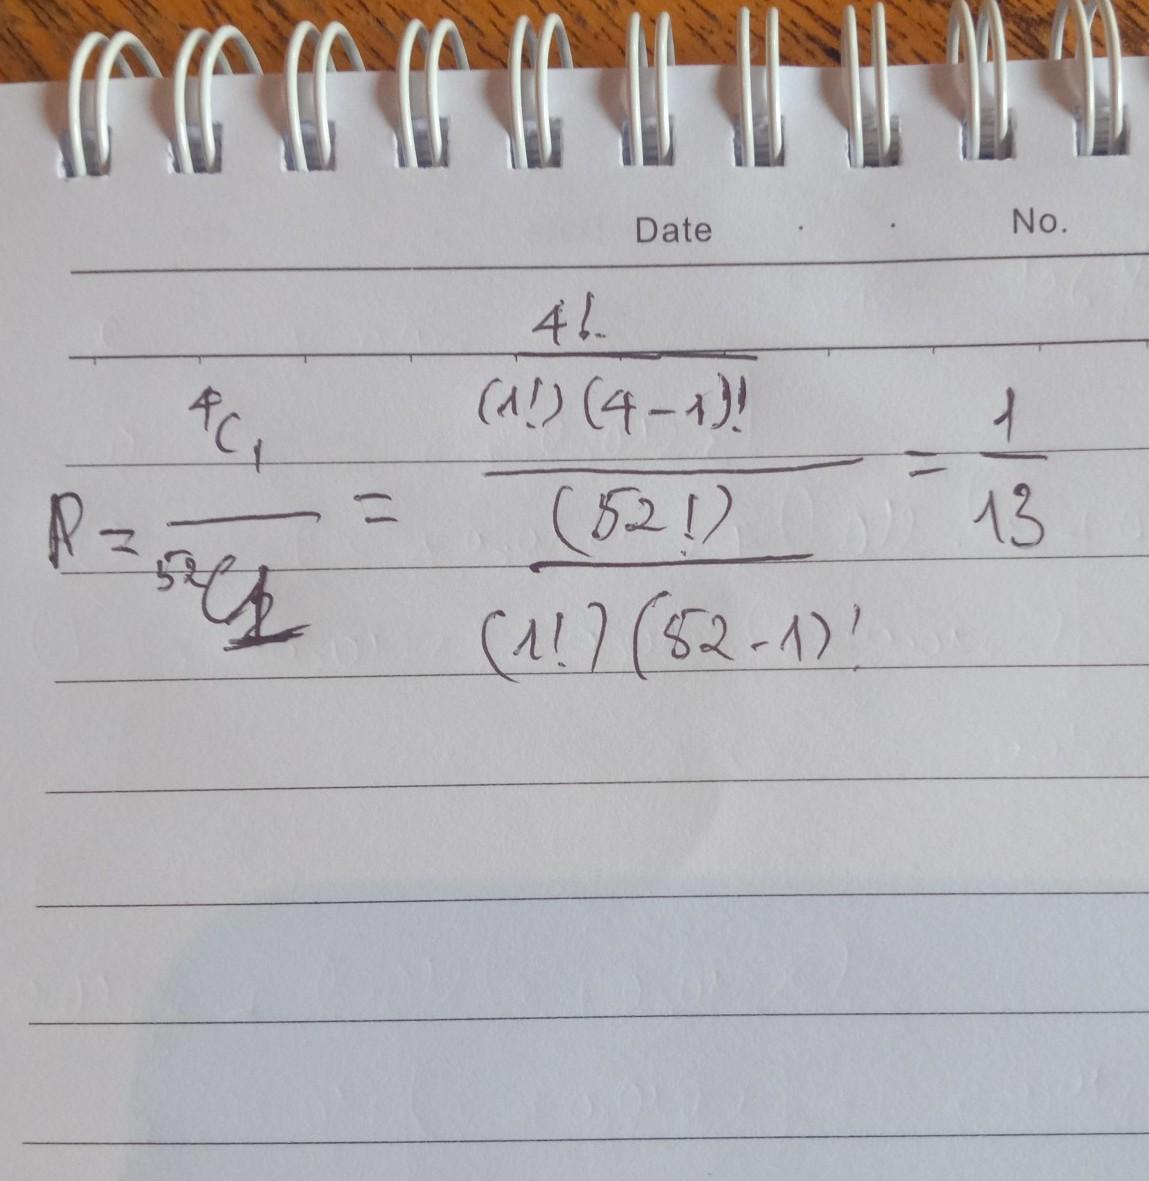 Date . . No.
P = ⁴C₁ / ⁵²C₁ = (4! / (1!)(4-1)!) / ((52!) / (1!)(52-1)!) = 1/13